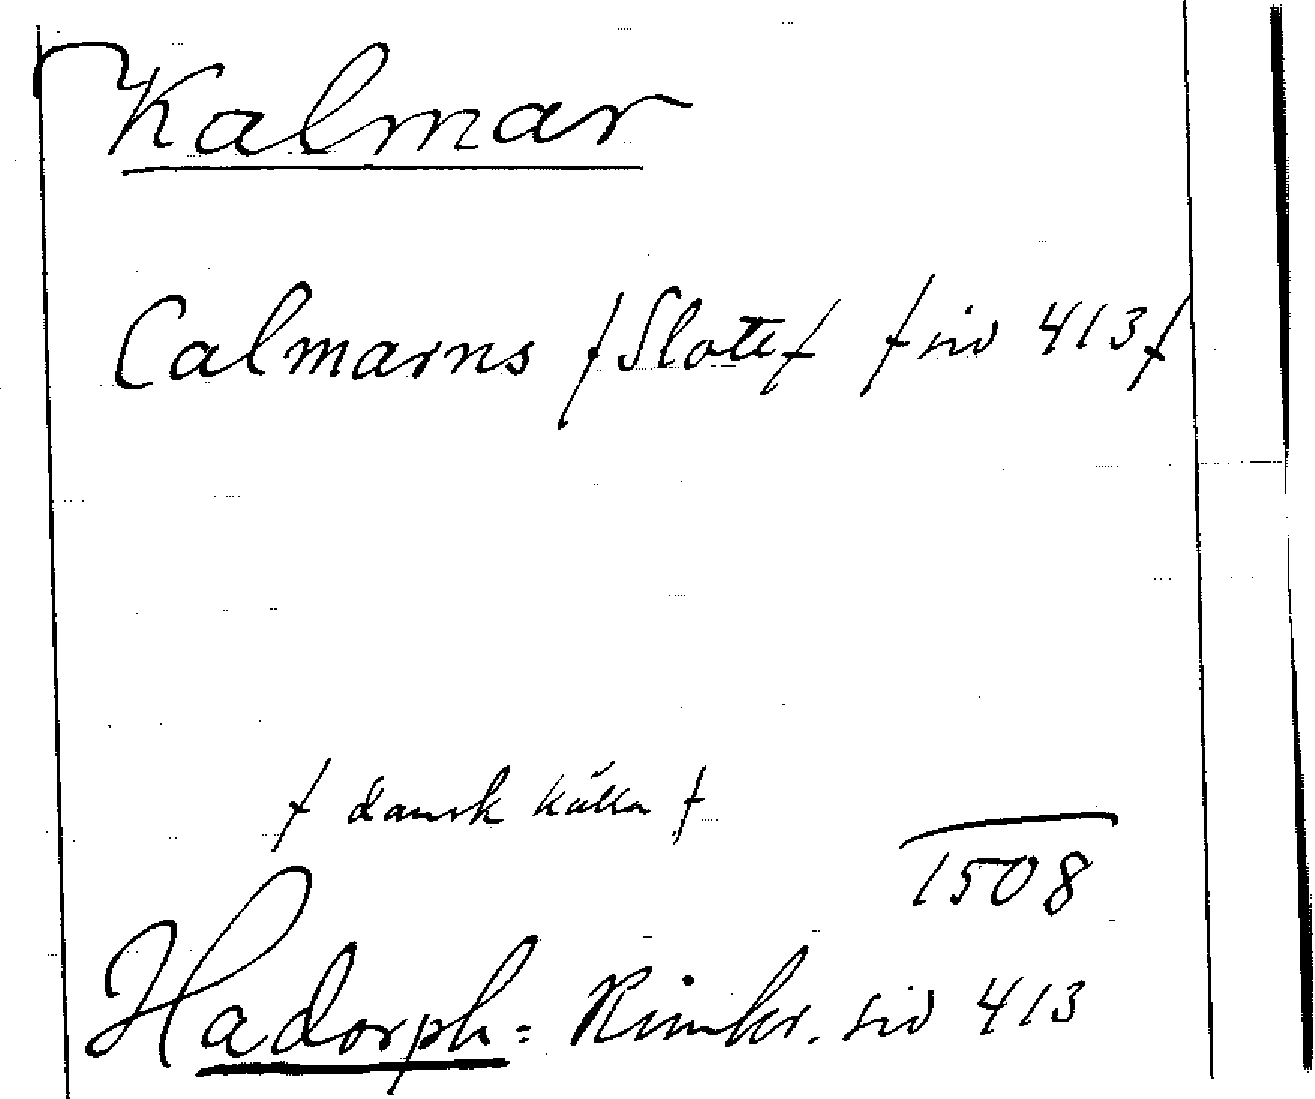 Kalmar
Calmarns /Slott/ /sid 413/
/ dansk källa /
1508
Hadorph: Rimkr. sid 413